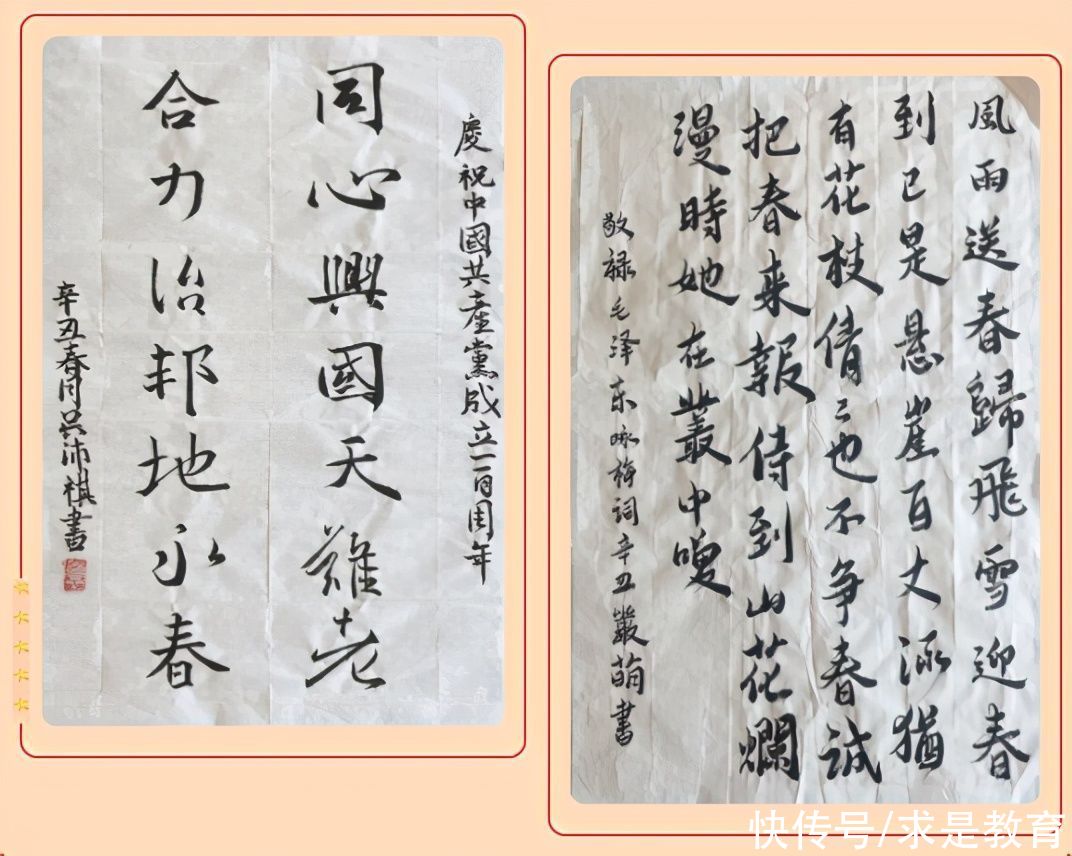 慶祝中國共產黨成立一百周年
同心興國天難老
合力治邦地永春
辛丑春月吴沛祺書
風雨送春歸飛雪迎春
到已是悬崖百丈冰猶
有花枝倩々也不争春誠
把春来報侍到山花爛
漫時她在叢中咲
敬禄毛泽东咏梅詞辛丑叢萌書
快传号/求是教育